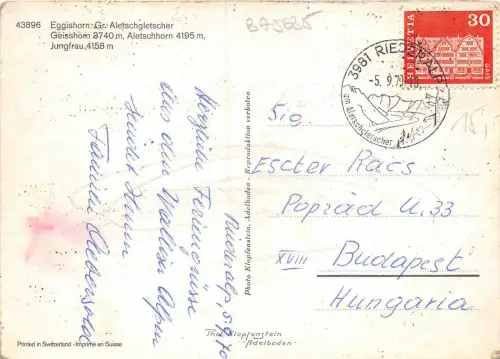 43896 Eggishorn: Gr. Aletschgletscher
Geisshorn 3740 m, Aletschhorn 4195 m,
Jungfrau, 4158 m
B75625
HELVETIA 30
GAIS
3981 RIEDERALP
-5.9.70
am Aletschgletscher
Riederalp, 5.9.70
Herzliche Feriengrüsse
aus den Walliser Alpen
sendet Ihnen
Familie
Photo Klopfenstein, Adelboden - Reproduktion verboten
Sig.
Escter Racs
Popràd U. 33
XVIII Budapest
Hungaria
15,-
Printed in Switzerland - Imprimé en Suisse
Klopfenstein
Adelboden